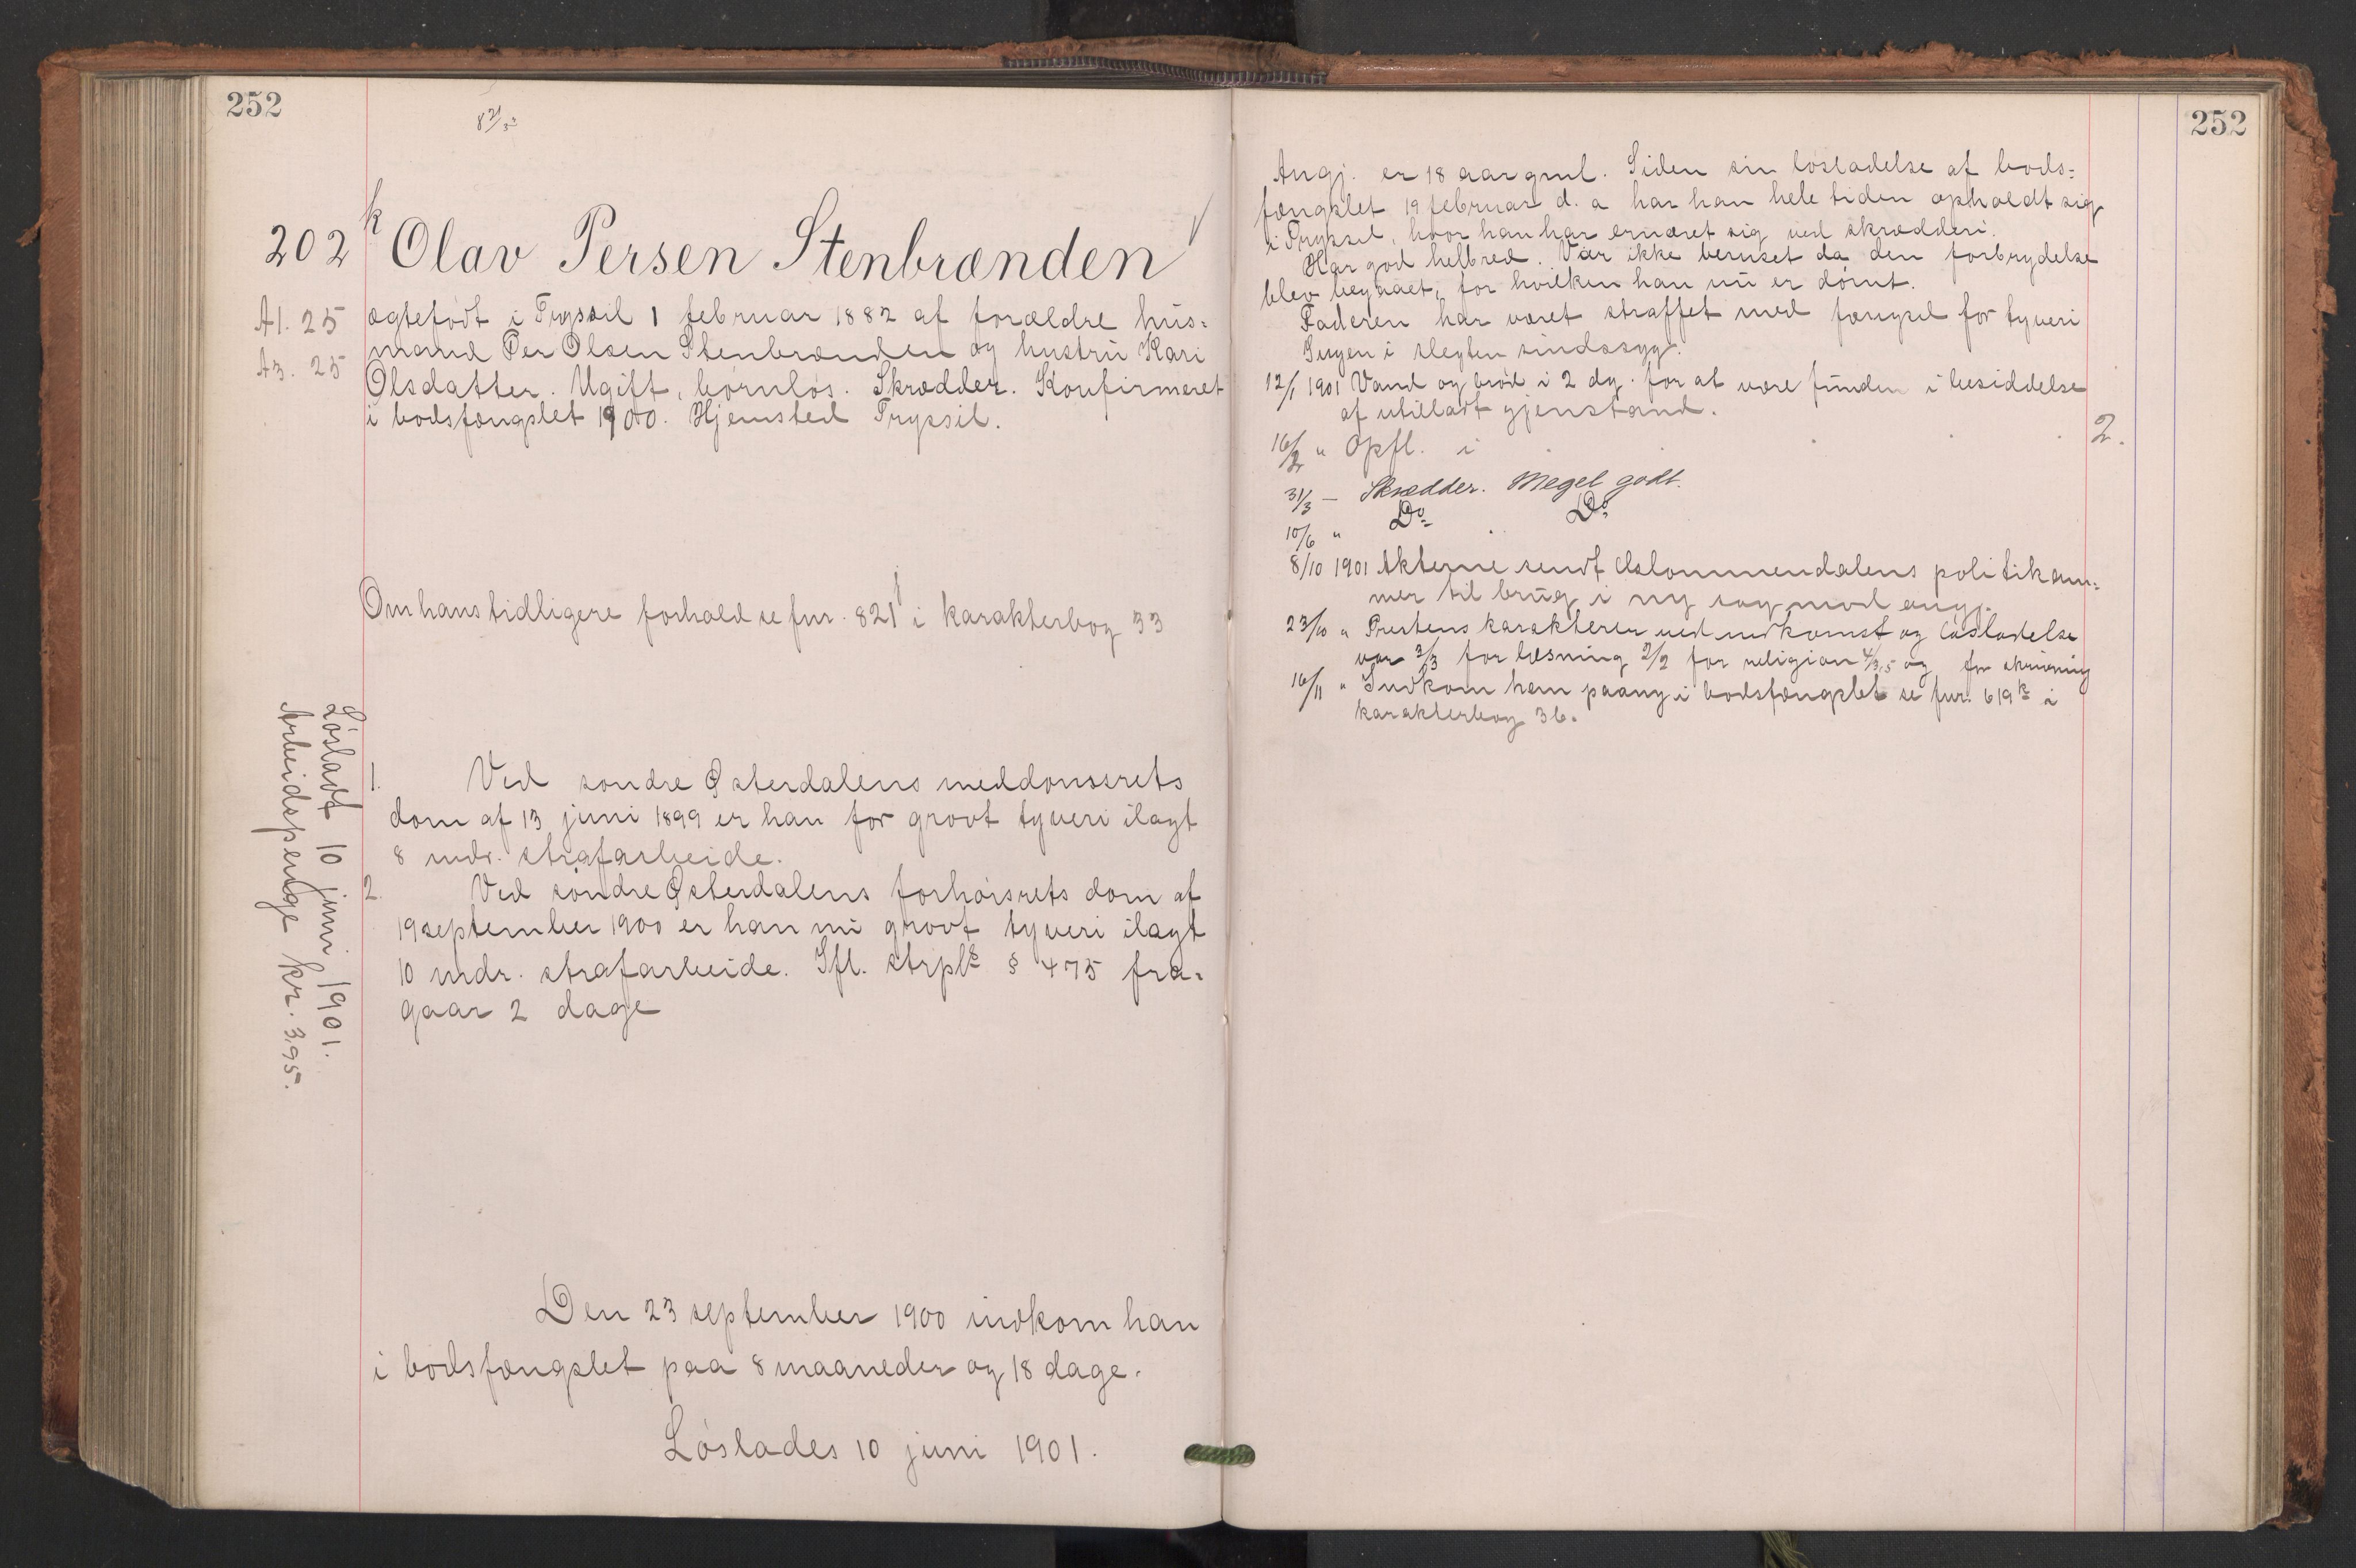 252
202 k Olav Persen Stenbrænden
A1. 25
A3. 25
ægtefødt i Trysil 1 februar 1882 af forældre hus=
mand Per Olsen Stenbrænden og hustru Kari
Olsdatter. Ugift, børnløs. Skrædder. Konfirmeret
i bodsfængslet 1900. Hjemsted Trysil.
Om hans tidligere forhold se fnr. 821 j i karakterbog 33
Løsladt 10 juni 1901.
Arbeidspenge kr. 3,95.
1. Ved søndre Østerdalens meddomsrets
dom af 13 juni 1899 er han for grovt tyveri ilagt
8 mdr. strafarbeide.
2. Ved søndre Østerdalens forhørsrets dom af
19 september 1900 er han nu grovt tyveri ilagt
10 mdr. strafarbeide. Ifl. strpl § 475 fra=
gaar 2 dage
Den 23 september 1900 indkom han
i bodsfængslet paa 8 maaneder og 18 dage.
Løslades 10 juni 1901.
252
Angj. er 18 aar gml. Siden sin løsladelse af bods=
fængslet 19 februar d. a har han hele tiden opholdt sig
i Trysil, hvor han har ernæret sig ved skrædderi.
Har god helbred. Var ikke beruset da den forbrydelse
blev begaaet, for hvilken han nu er dømt.
Faderen har været straffet med fængsel for tyveri
Ingen i slegten sindssyg.
12/1 1901 Vand og brød i 2 dg. for at være funden i besiddelse
af utilladt gjenstand.
16/2 " Opfl. i . . . 2.
31/3 — Skrædder. Meget godt.
10/6 " Do Do
8/10 1901 Akterne sendt Østommendalens politikam=
mer til brug i ny sag mod angj.
23/10 " Prestens karakterer ved indkomst og løsladelse
var 3/3 for læsning 2/2 for religion 4/3,5 og for skrivning
16/11 " Indkom han paany i bodsfængslet se fnr. 619 k i
karakterbog 36.